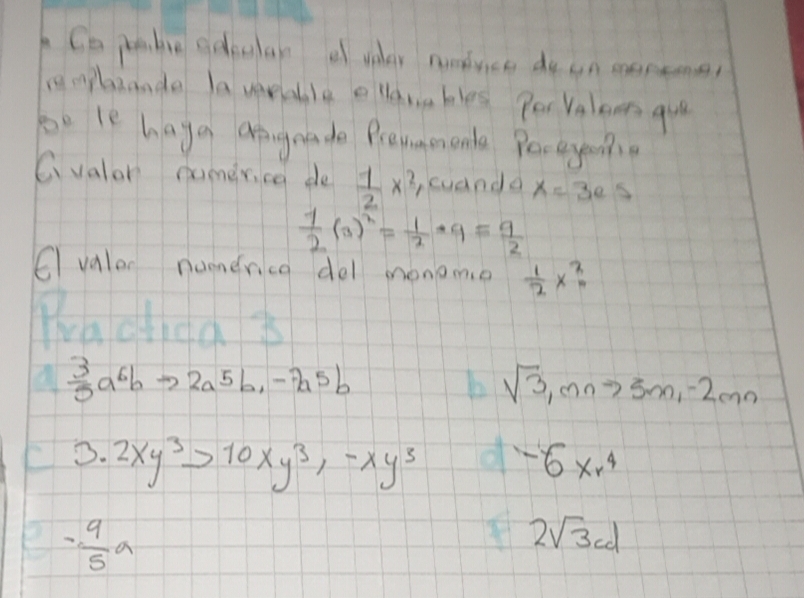 • Es posible calcular el valor numérico de un monomio,
remplazando la variable o las variables por valores que
se le haya asignado Previamente Por ejemplo
El valor numérico de 1/2 x², cuando x = 3 es
1/2 (3)² = 1/2 • 9 = 9/2
El valor numérico del monomio 1/2 x²
Practica 3
a 3/5 a⁶b → 2a⁵b, -7a⁵b b √3, mn → 5m, -2mn
c 3.2xy³ → 10xy³, -xy³ d -6x⁴
e -9/5 a f 2√3cd